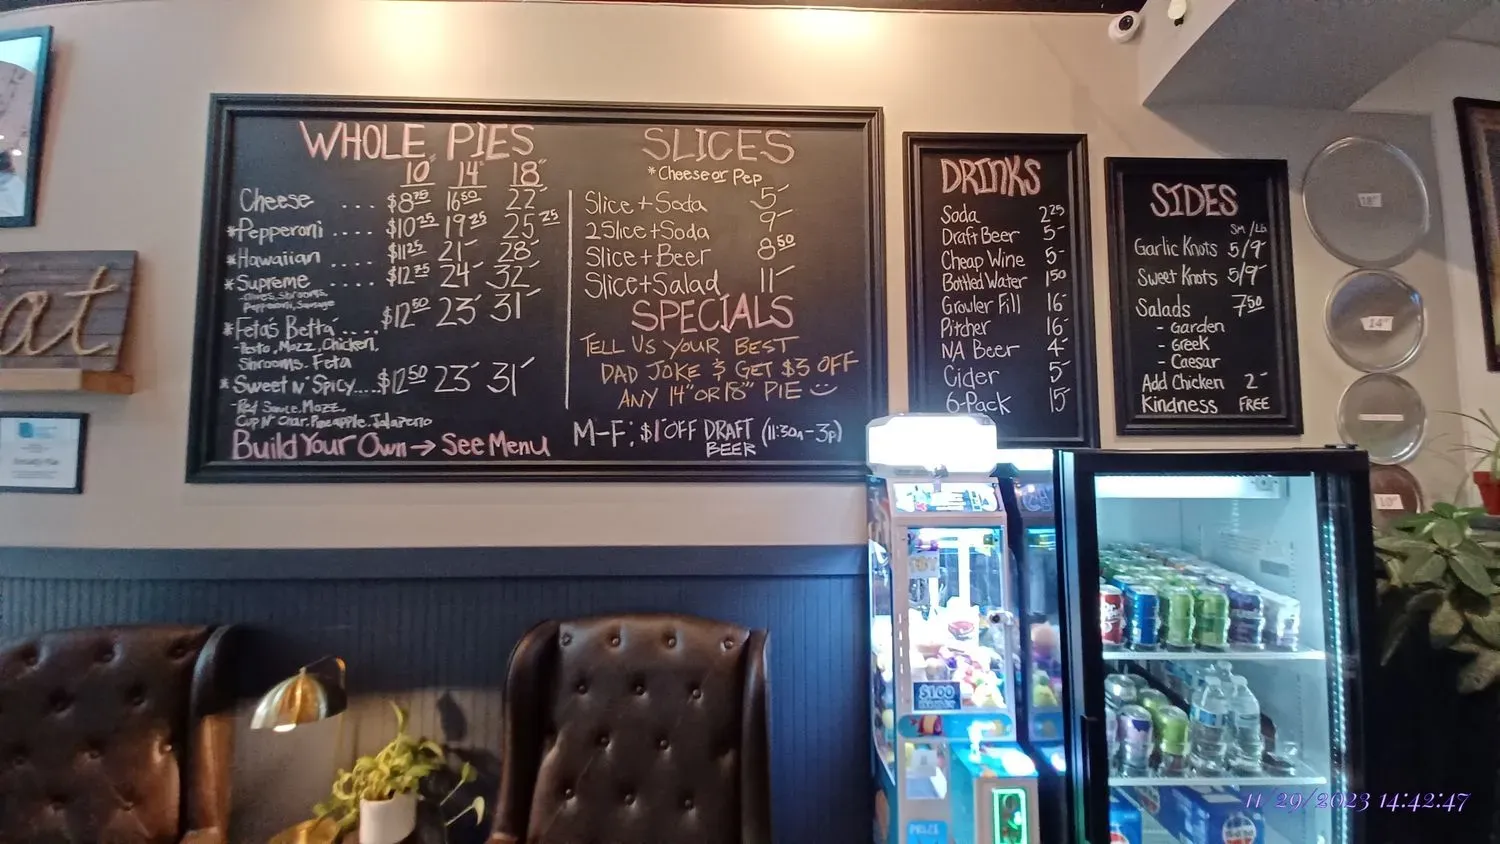 at
WHOLE PIES
10" 14" 18"
Cheese .... $8.75 16.50 22-
*Pepperoni .... $10.25 19.25 25.25
*Hawaiian .... $11.25 21- 28-
*Supreme .... $12.75 24- 32-
-Olives, Shrooms,
Pepperoni, Sausage
*Feta's Betta ..... $12.50 23- 31-
-Pesto, Mozz, Chicken,
Shrooms, Feta
*Sweet N' Spicy..... $12.50 23- 31-
-Red Sauce, Mozz,
Cup N' Char, Pineapple, Jalapeño
Build Your Own → See Menu
SLICES
*Cheese or Pep
Slice + Soda 5-
2 Slice + Soda 9-
Slice + Beer 8.50
Slice + Salad 11-
SPECIALS
TELL US YOUR BEST
DAD JOKE & GET $3 OFF
ANY 14" OR 18" PIE
M-F: $1 OFF DRAFT (11:30A-3P)
BEER
DRINKS
Soda 2.25
Draft Beer 5-
Cheap Wine 5-
Bottled Water 1.50
Growler Fill 16-
Pitcher 16-
NA Beer 4-
Cider 5-
6-Pack 15-
SIDES
SM/LG
Garlic Knots 5/9-
Sweet Knots 5/9-
Salads 7.50
- Garden
- Greek
- Caesar
Add Chicken 2-
Kindness FREE
18"
14"
10"
$100
PRIZE
11/29/2023 14:42:47